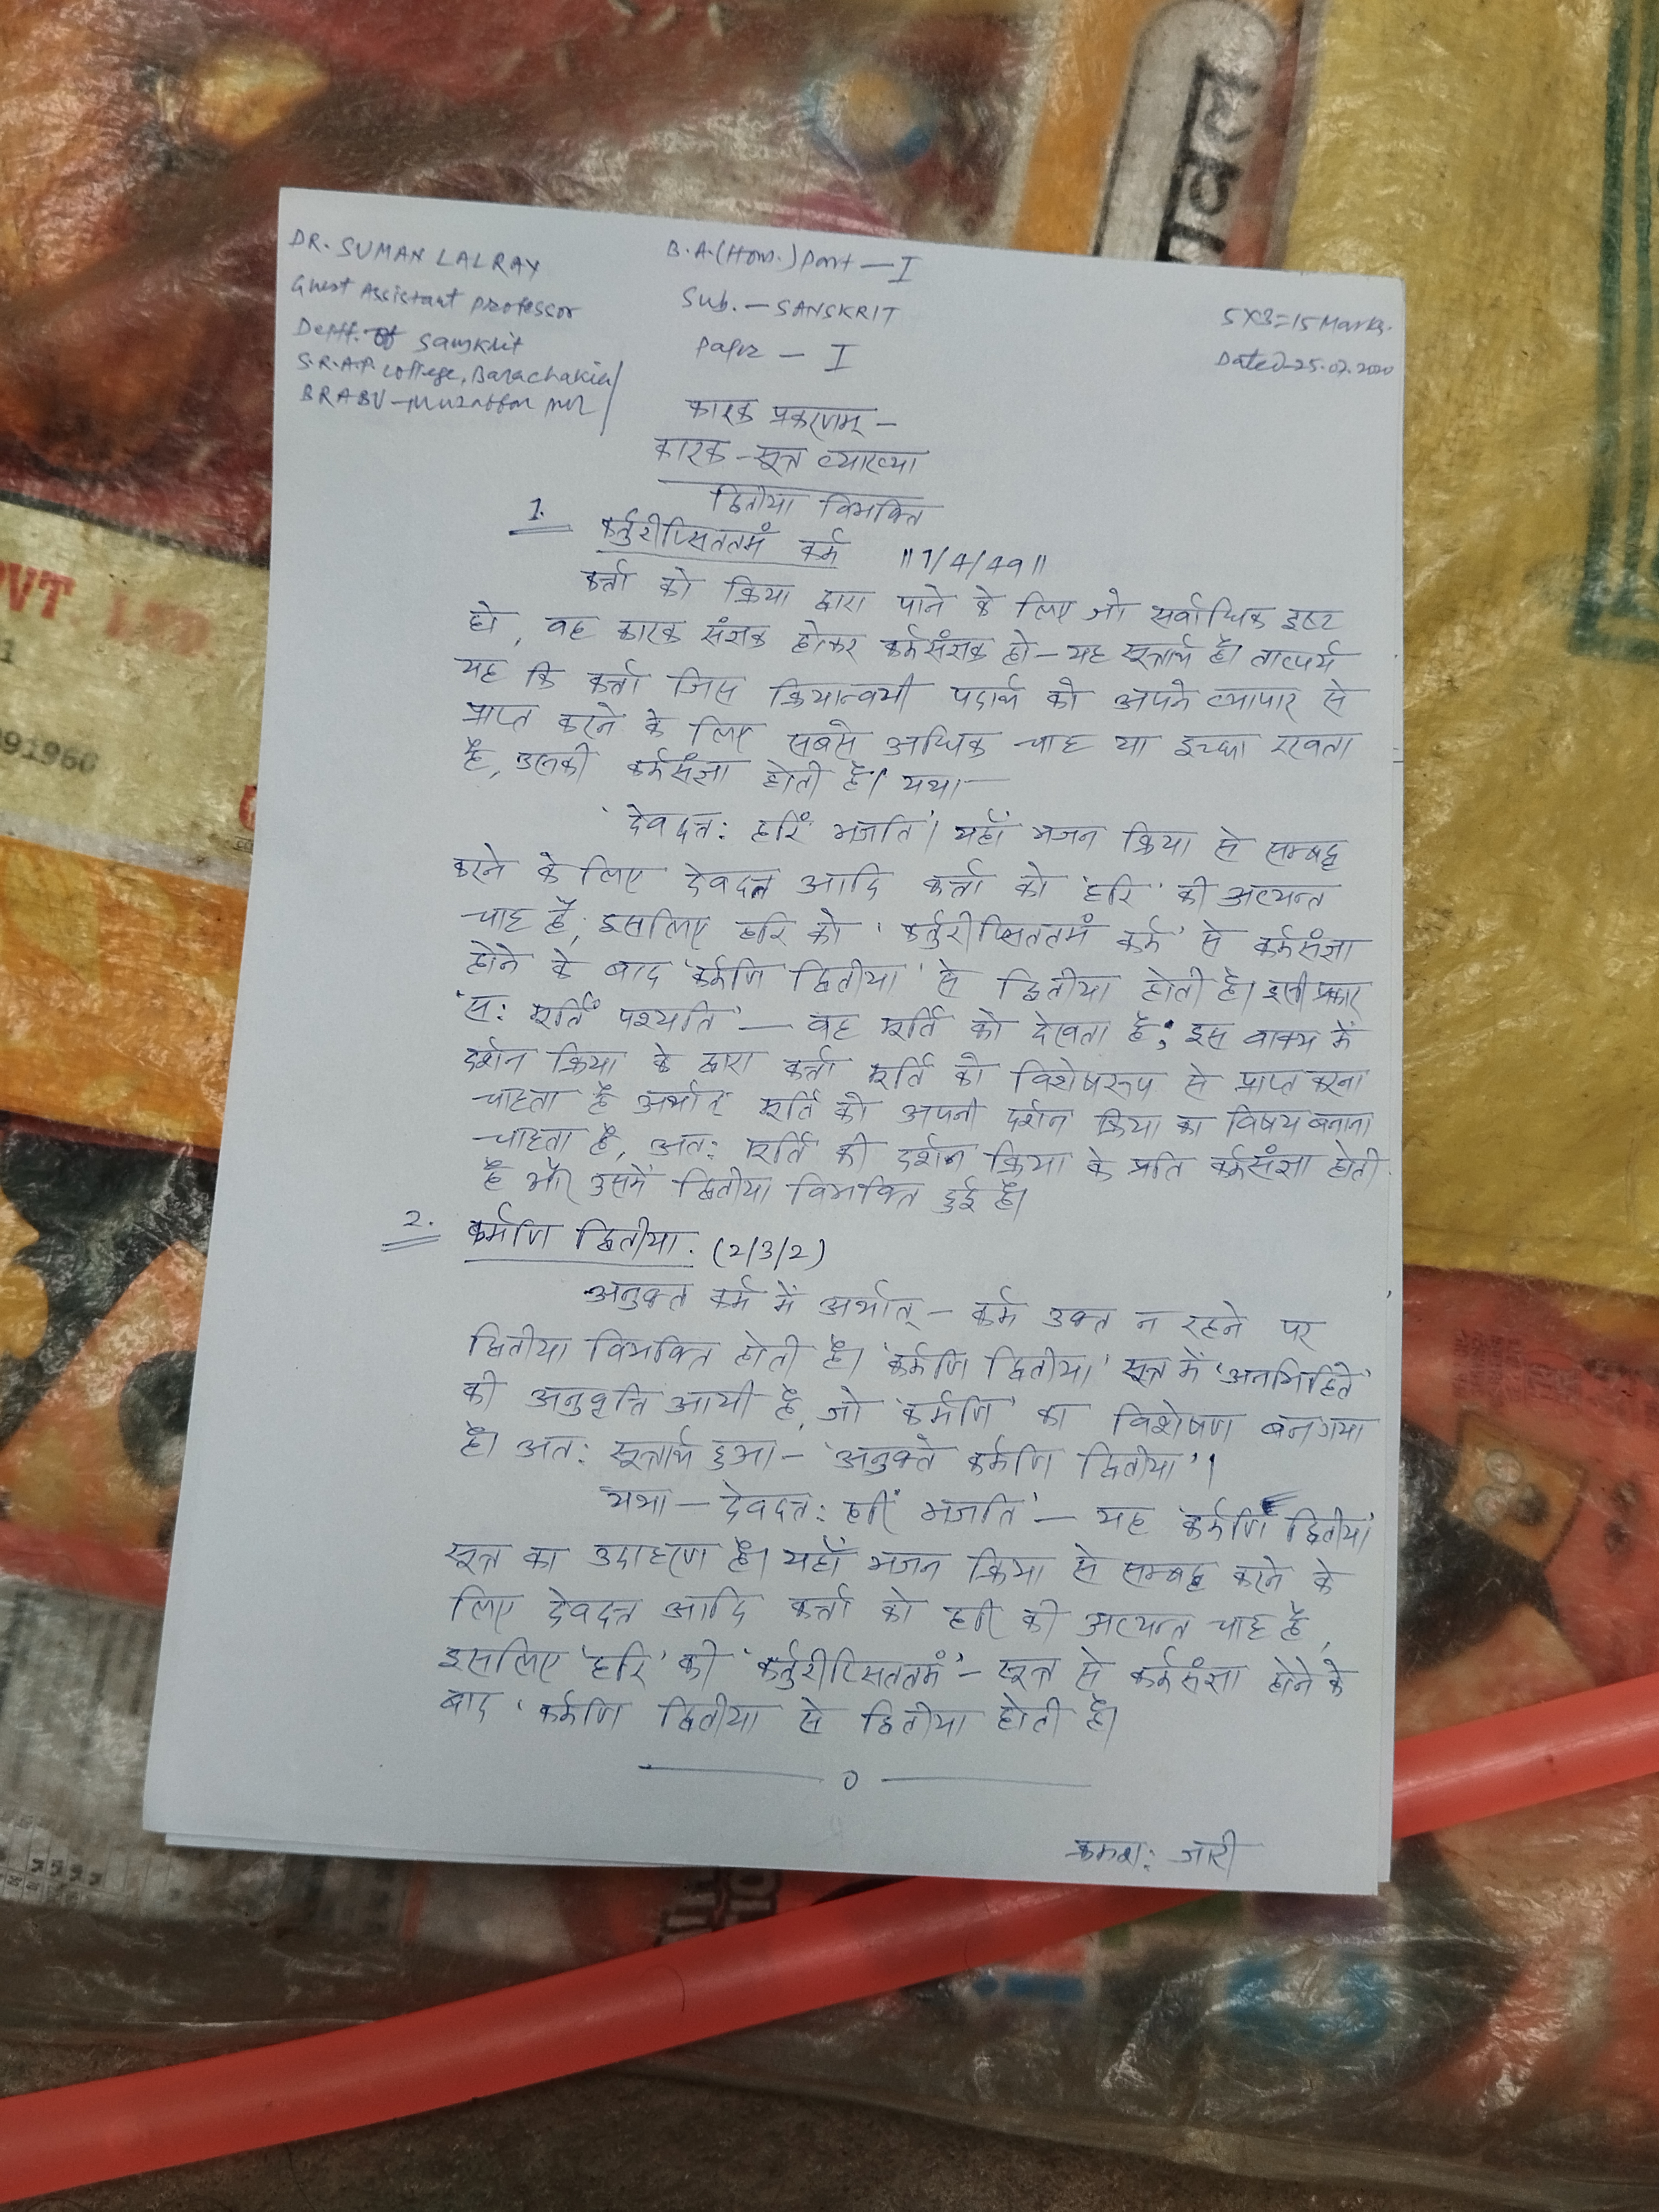 DR. SUMAN LAL RAY
Guest Assistant Professor
Deptt. of Sanskrit
S.R.A.P. College, Barachakia/
BRABU-
B.A.(Hon.) Part - I
Sub. - SANSKRIT
Paper - I
5X3=15 Marks.
Dated-25.07.2020
कारक प्रकरणम् -
कारक - सूत्र व्याख्या
द्वितीया विभक्ति
1. कर्तुरीप्सिततमं कर्म ॥1/4/49॥
कर्त्ता को क्रिया द्वारा पाने के लिए जो सर्वाधिक इष्ट
हो, वह कारक संज्ञक होकर कर्मसंज्ञक हो - यह सूत्रार्थ है। तात्पर्य
यह कि कर्त्ता जिस क्रियान्वयी पदार्थ को अपने व्यापार से
प्राप्त करने के लिए सबसे अधिक चाह या इच्छा रखता
है, उसकी कर्मसंज्ञा होती है। यथा -
'देवदत्त: हरिं भजति'। यहाँ भजन क्रिया से सम्बद्ध
करने के लिए देवदत्त आदि कर्त्ता को 'हरि' की अत्यन्त
चाह है, इसलिए हरि को 'कर्तुरीप्सिततमं कर्म' से कर्मसंज्ञा
होने के बाद 'कर्मणि द्वितीया' से द्वितीया होती है। इसी प्रकार
'स: मूर्तिं पश्यति' - वह मूर्ति को देखता है; इस वाक्य में
दर्शन क्रिया के द्वारा कर्त्ता मूर्ति को विशेषरूप से प्राप्त करना
चाहता है अर्थात् मूर्ति को अपनी दर्शन क्रिया का विषय बनाना
चाहता है, अत: मूर्ति की दर्शन क्रिया के प्रति कर्मसंज्ञा होती
है और उसमें द्वितीया विभक्ति हुई है।
2. कर्मणि द्वितीया. (2/3/2)
अनुक्त कर्म में अर्थात् - कर्म उक्त न रहने पर
द्वितीया विभक्ति होती है। 'कर्मणि द्वितीया' सूत्र में 'अनभिहिते'
की अनुवृत्ति आयी है, जो 'कर्मणि' का विशेषण बन गया
है। अत: सूत्रार्थ हुआ - 'अनुक्ते कर्मणि द्वितीया'।
यथा - देवदत्त: हरिं भजति' - यह 'कर्मणि द्वितीया'
सूत्र का उदाहरण है। यहाँ भजन क्रिया से सम्बद्ध करने के
लिए देवदत्त आदि कर्त्ता को हरि की अत्यन्त चाह है,
इसलिए 'हरि' की 'कर्तुरीप्सिततमं' - सूत्र से कर्मसंज्ञा होने के
बाद 'कर्मणि द्वितीया से द्वितीया होती है।
0
क्रमश: जारी
PVT. LTD
91960
चावल